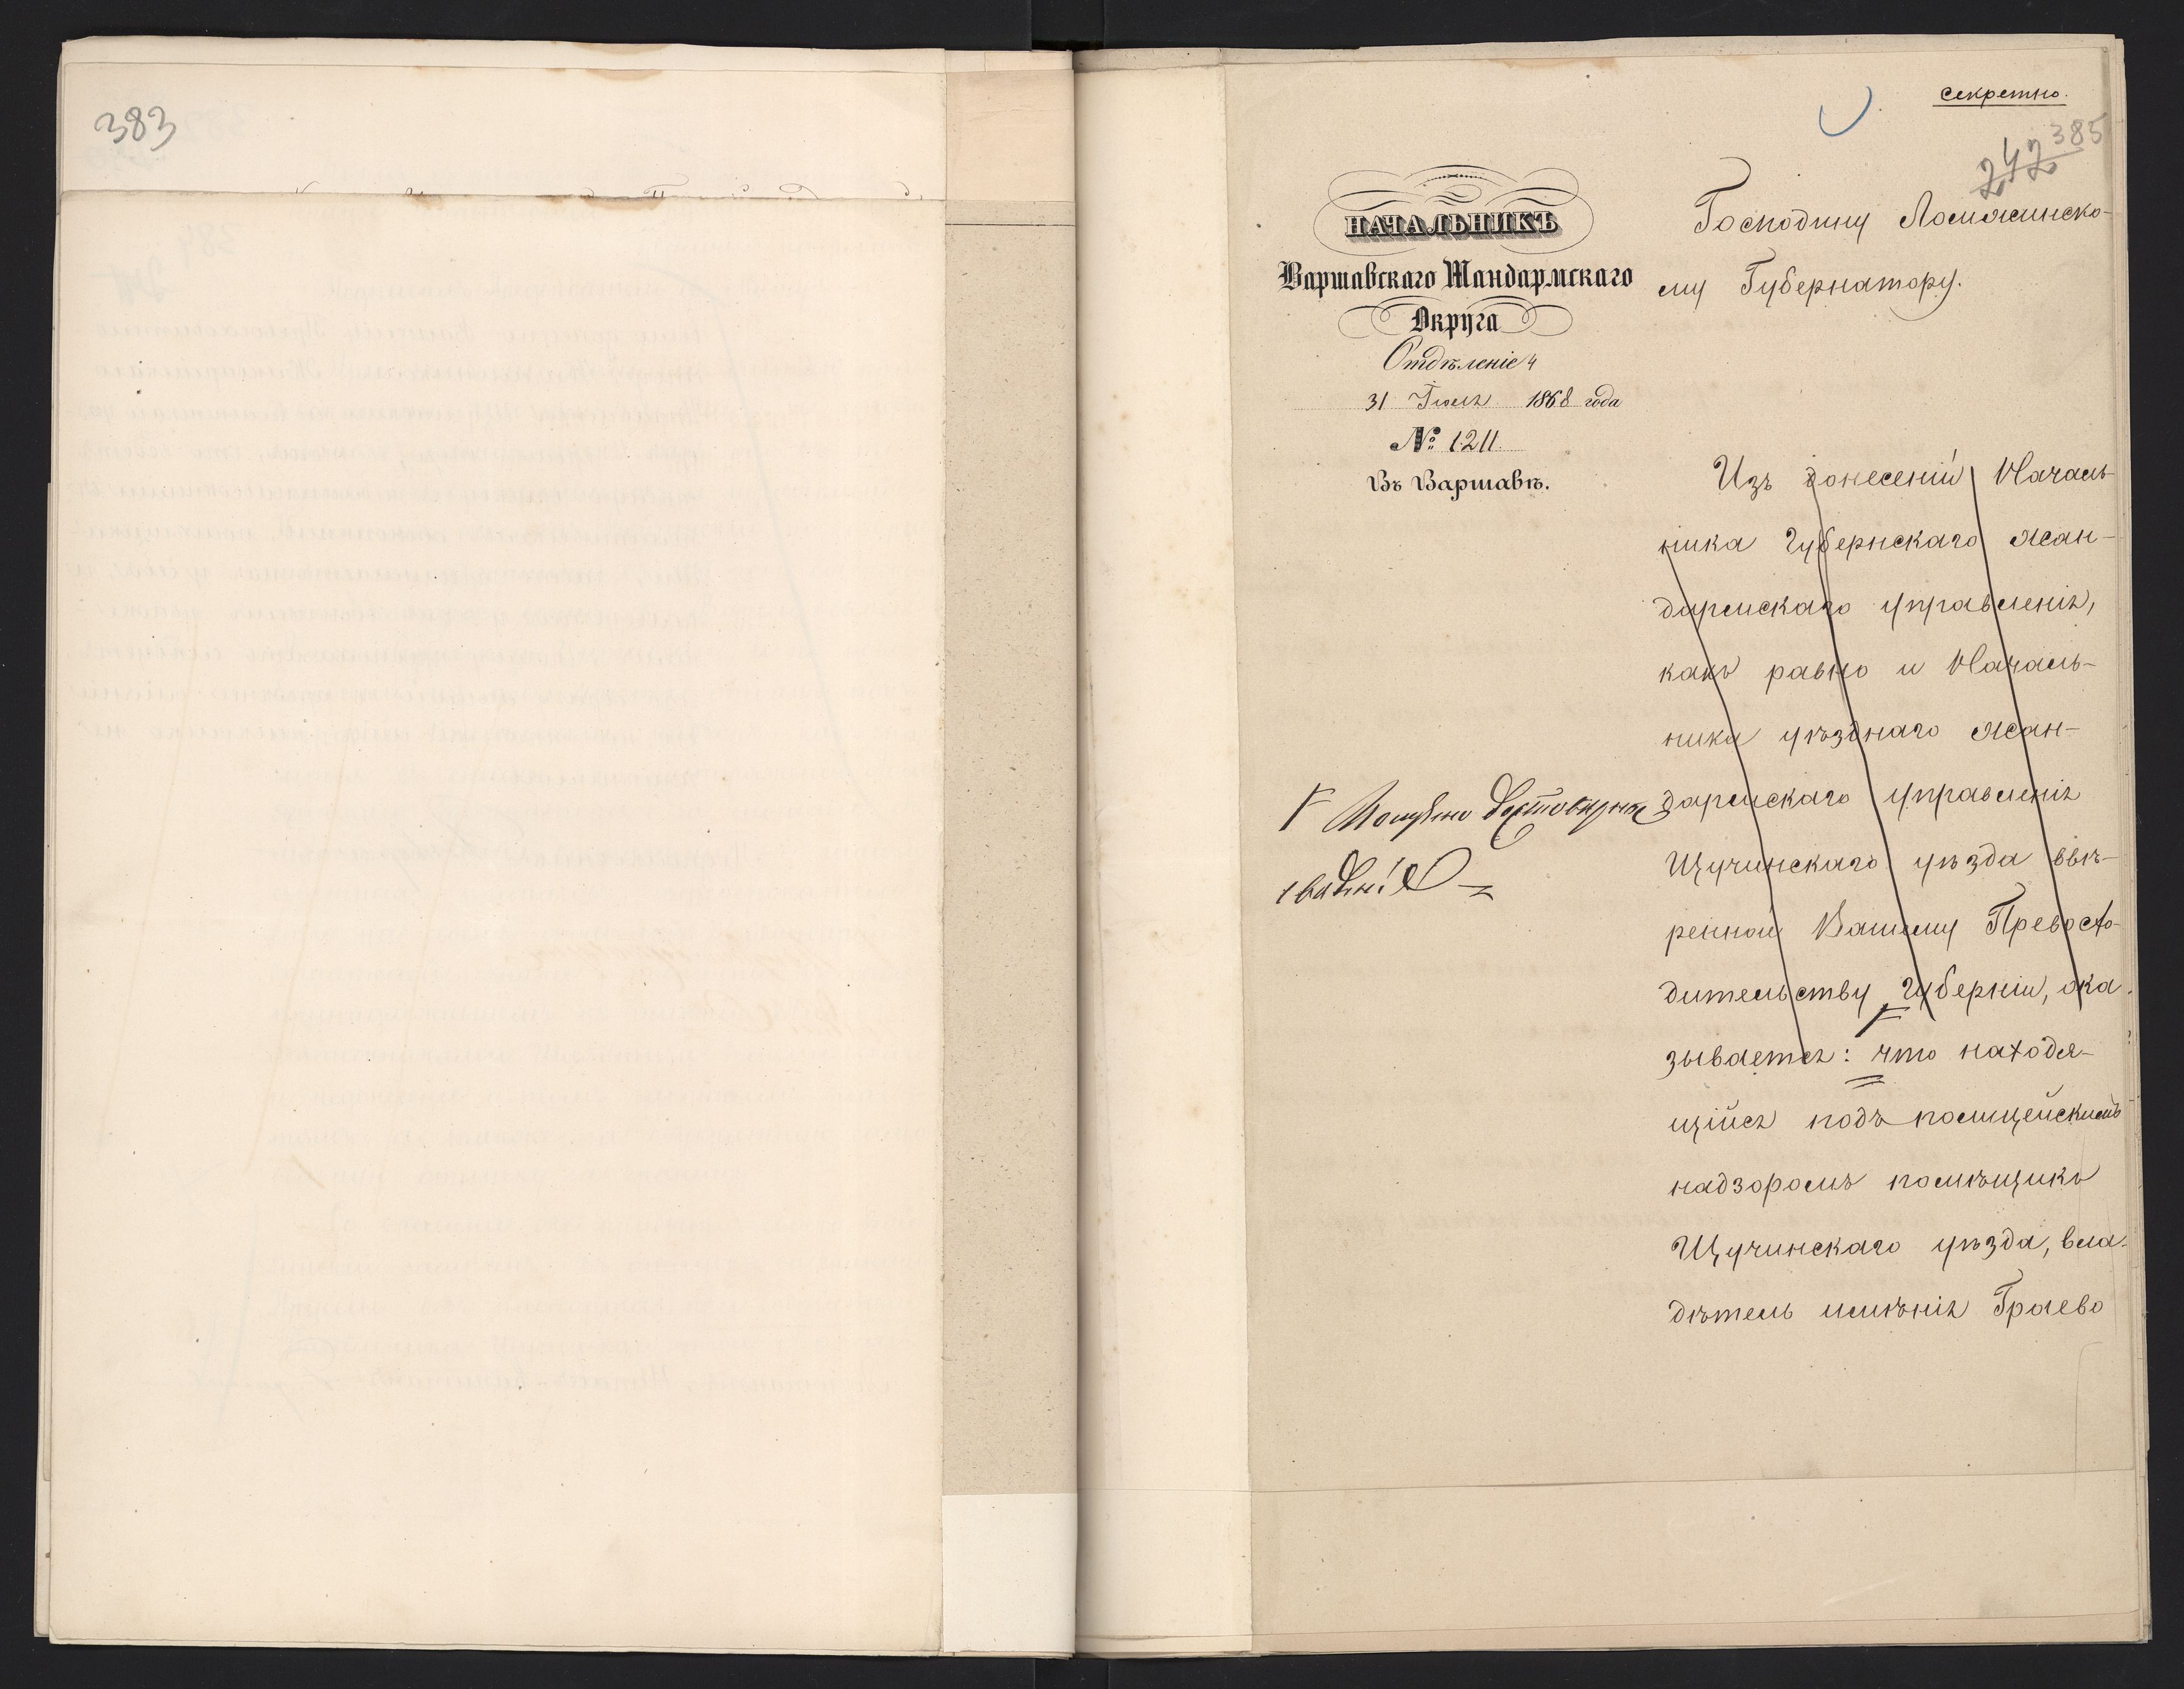 383
секретно.
385
242
НАЧАЛЬНИКЪ
Варшавскаго Жандармскаго
Округа
Отдѣленіе 4
31 Іюля 1868 года
№ 1211.
Въ Варшавѣ.
Господину Ломжинско-
му Губернатору.
Изъ донесеній Началь-
ника Губернскаго жан-
дармскаго управленія,
какъ равно и Началь-
ника уѣзднаго жан-
дармскаго управленія
Щучинскаго уѣзда ввѣ-
ренной Вашему Превосхо-
дительству Губерніи, ока
зывается: что находя-
щійся подъ полицейскимъ
надзоромъ помѣщикъ
Щучинскаго уѣзда, вла-
дѣтель имѣнія Граево
Получено